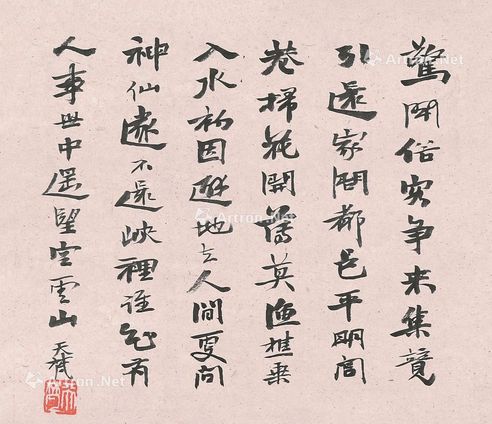 驚聞俗客争来集競
引還家問都邑平明閭
巷掃花開薄莫漁樵乗
入水初因避地去人間更问
神仙遂不還峽裡誰知有
人事世中遥望空雲山
Artron.Net